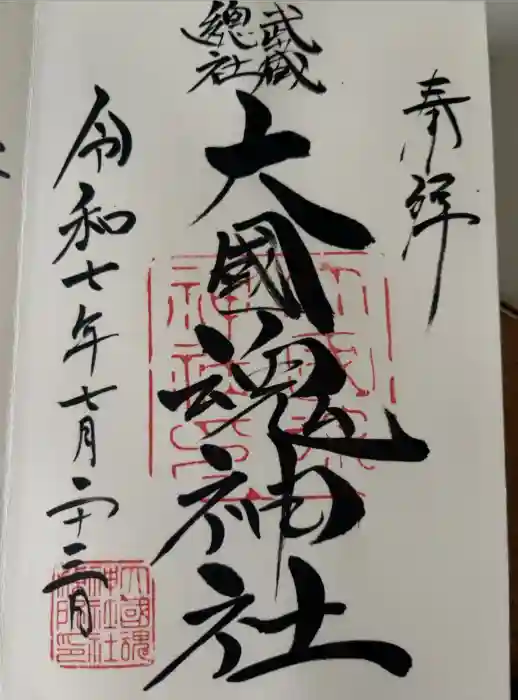 奉拝
武蔵
總社
大國魂神社
令和七年七月二十三日
大國魂
神社社